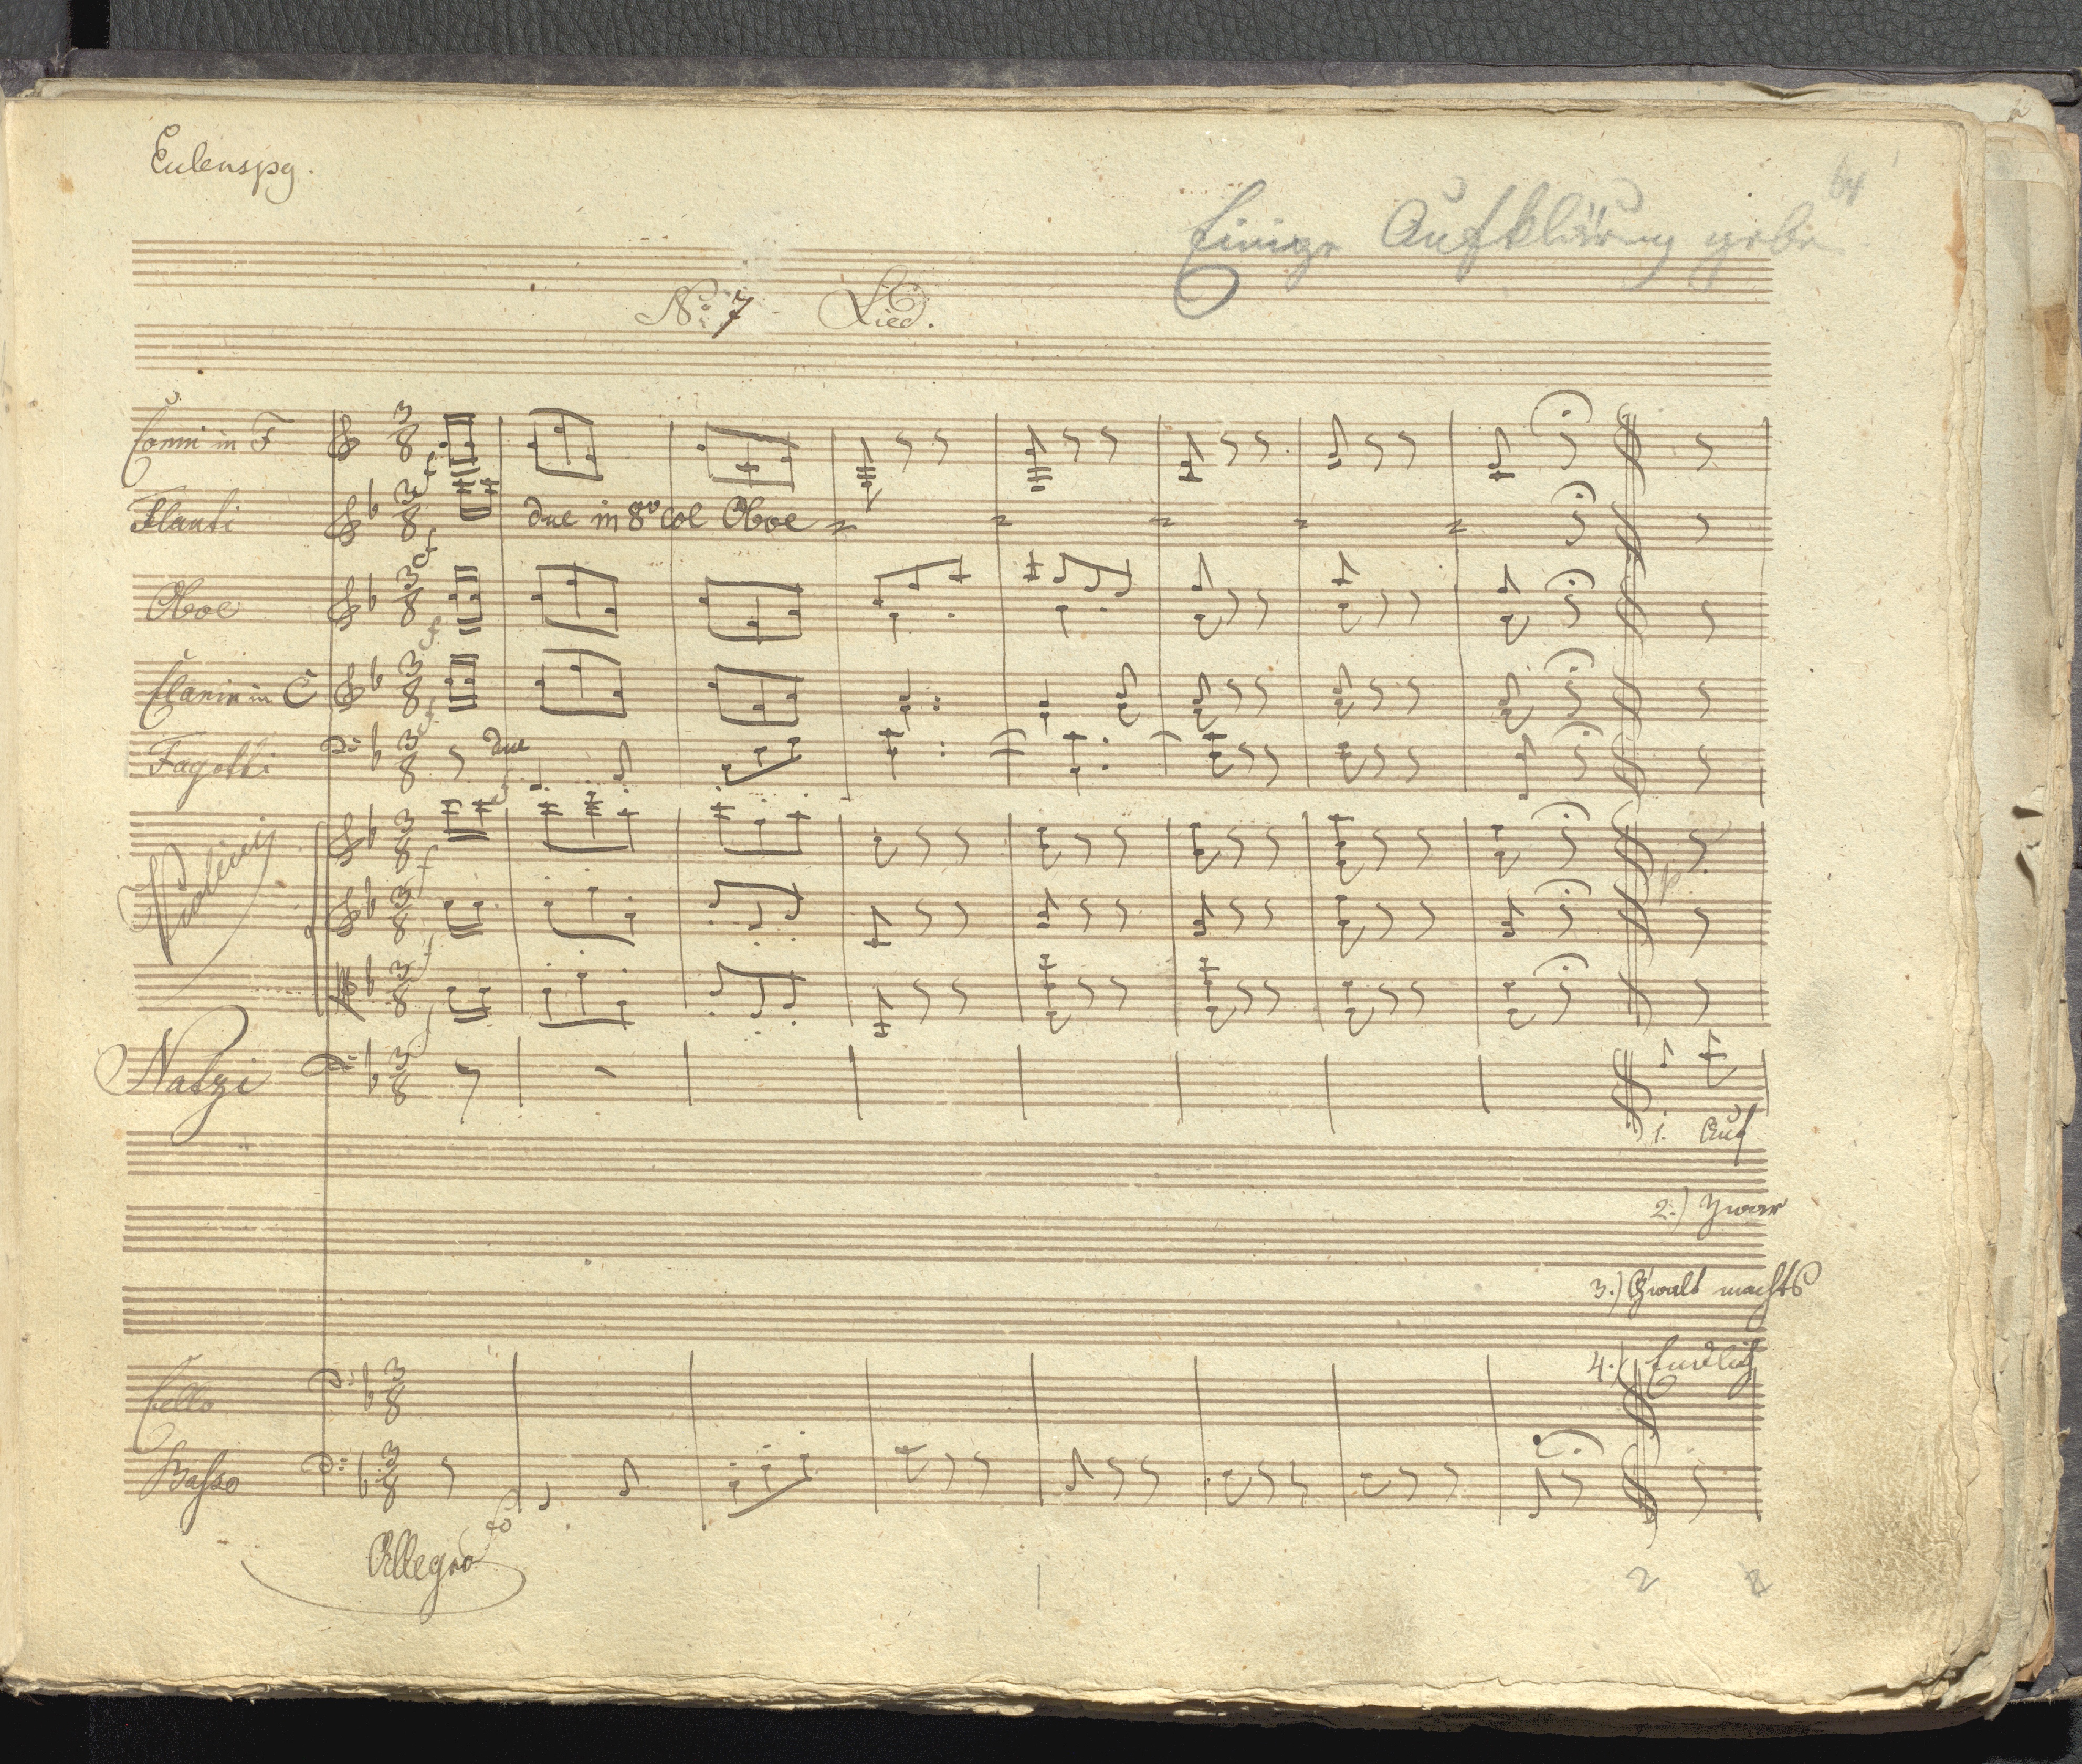 Eulenspg.
64
Einige Aufklärung geben
No 7 Lied.
Corni in F
Flauti
due in 8va col Oboe
Oboe
Clarin in C
Fagotti
due
Violini
Natzi
1. Auf
2.) Zwar
3.) Gwalt machts
4.) Endlich
Cello
Basso
fo
Allegro
2 2